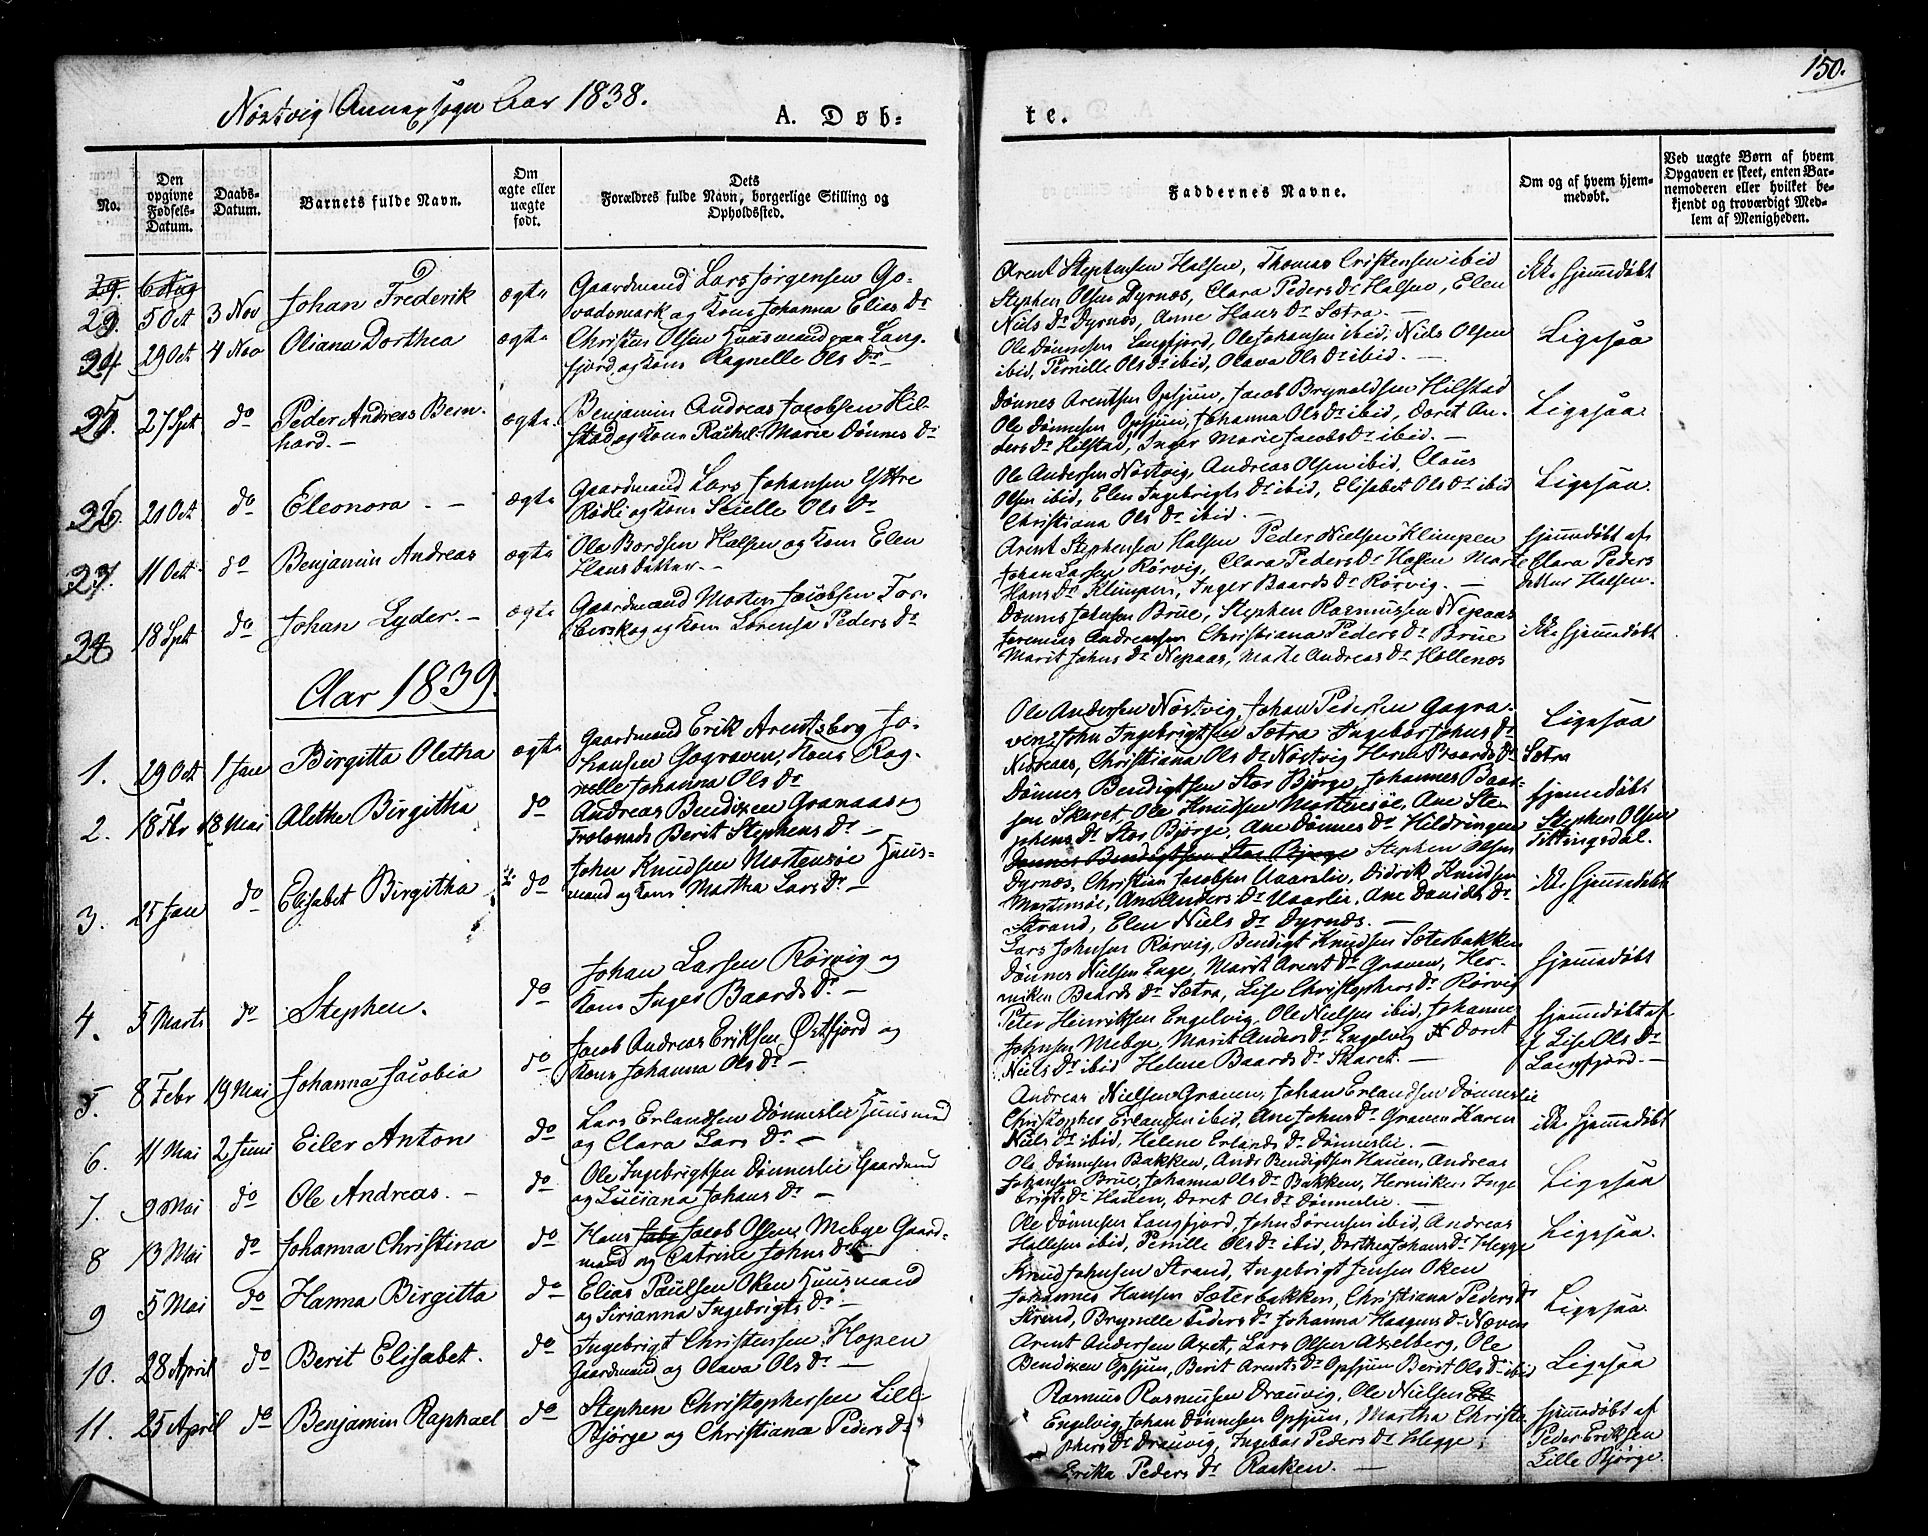 150.
Nöstvig Annexsogn Aar 1838.
A. Døb-
te.
No.
Den opgivne Fødsels-Datum.
Daabs-Datum.
Barnets fulde Navn.
Om ægte eller uægte født.
Dets
Forældres fulde Navn, borgerlige Stilling og
Opholdssted.
Faddernes Navne.
Om og af hvem hjem-
medøbt.
Ved uægte Børn af hvem
Opgaven er skeet, enten Bar-
nemoderen eller hvilket be-
kjendt og troværdigt Med-
lem af Menigheden.
23. 5 Oct 3 Nov Johan Frederik ægte
Gaardmand Lars Jörgensen Go-
vadsmark og Kone Johanna Elias Dr
Arent Stephensen Halsen, Thomas Cristensen ibid
Stephen Olsen Dyrnæs, Clara Peders Dr Halsen, Elen
Niels Dr Dyrnæs, Anne Hans Dr Sætra.
ikke hjemedöbt
24 29 Oct 4 Nov Oliana Dorthea ægte
Christen Olsen Huusmand paa Lang-
fjord, og Kone Ragnelle Ols Dr
Ole Dönnesen Langfjord, Ole Johansen ibid, Niels Olsen
ibid, Pernille Ols Dr ibid, Olava Ols Dr ibid. —
Ligesaa
25. 27 Sept do Peder Andreas Bern-
hard. — ægte.
Benjamin Andreas Jacobsen Hil-
stad og Kone Rachel-Marie Dönnes Dr
Dönnes Arentsen Opsjun, Jacob Brynoldsen Hilstad
Ole Dönnesen Opsjun, Johanna Ols Dr ibid, Doret An-
ders Dr Hilstad, Inger Marie Jacobs Dr ibid. —
Ligesaa.
26. 21 Oct do Eleonora. — ægte
Gaardmand Lars Johansen Yttre
Rödli og Kone Ols Dr
Ole Andersen Nöstvig, Andreas Olsen ibid, Claus
Olsen ibid, Elen Ingebrigts Dr ibid, Elisabet Ols Dr ibid
Christiana Ols Dr ibid. —
Ligesaa.
27. 11 Oct do Benjamin Andreas ægte
Ole Bordsen Halsen og Kone Elen
Hans Datter. —
Arent Stephensen Halsen Peder Nielsen Klimpen
Johan Larsen Rörvig, Clara Peders Dr Halsen Marte
Hans Dr Klimpen, Inger Baards Dr Rörvig. —
hjemedöbt af
Clara Peders
datter Halsen.
28 18 Sept do Johan Lyder. — ægte
Gaardmand Morten Jacobsen For-
berskog og Kone Lorensa Peders Dr
Dönnes Johnsen Brue, Stephen Rasmussen Nepaas
Jeremias Andreasen Christiana Peders Dr Brue
Marit Johns Dr Nepaas, Marte Andreas Dr Hollenæs
ikke hjemedöbt
Aar 1839.
1. 29 Oct 1 Jan Birgitta Oletha ægte
Gaardmand Erik Arentsberg Jo-
hansen Gogroven, Kone Rag-
nelle Johanna Ols Dr
Ole Andersen Nöstvig, Johan Pedersen Gogra-
ven, John Ingebrigtsen Sætra Ingebor Johns Dr
Christiana Ols Dr Nöstvig Baards Dr Sætra
Ligesaa
2. 18 Fbr 18 Mai Alethe Birgitha do
Andreas Bendixen Granaas og
Berit Stephens Dr —
Dönnes Bendigtsen Stor Björge, Johannes Baar-
sen Skaret, Ole Knudsen Mortensöe, Ane Ste-
phens Dr Stor Björge, Ane Dönnes Dr Hildringen
hjemedöbt
Stephen Olsen
Fittingsdal.
3. 25 Jan do Elisabet Birgitha do
John Knudsen Mortensöe Huus-
mand og Kone Martha Lars Dr —
Dönnes Bendigtsen Stor Bjorge Stephen Olsen
Dyrnæs, Christian Jacobsen Uaarlie, Didrik Knudsen
Mortensöe, Ane Anders Dr Uaarlie, Ane Daniels Dr
Strand, Elen Niels Dr Dyrnæs. —
ikke hjemedöbt
4. 5 Marts do Stephen. do
Johan Larsen Rörvig og
Kone Inger Baards Dr —
Lars Johnsen Rörvig, Bendigt Knudsen Sæterbakken
Dönnes Nielsen Enge, Marit Arent Dr Graven, Her-
niken Baards Dr Sætra, Lise Christophers Dr Rörvig
hjemedöbt
5. 8 Febr 19 Mai Johanna Jacobia do
Jacob Andreas Eriksen Östfjord og
Kone Johanna Ols Dr —
Peter Heinriksen Engelvig, Ole Nielsen ibid, Johannes
Johnsen Mebye, Marit Anders Dr Engelvig Doret
Niels Dr ibid Helene Baards Dr Skaret. —
hjemedöbt af
Lise Ols Dr
Langfjord. —
6. 11 Mai 2 Juni Eiler Anton do
Lars Erlandsen Dönneslie Huusmand
og Clara Lars Dr —
Andreas Nielsen Graven, Johan Erlandsen Dönneslie
Christopher Erlansen ibid, Ane Johns Dr Graven Karen
Niels Dr ibid, Helene Erlands Dr Dönneslie. —
ikke hjemedöbt
7. 9 Mai do Ole Andreas. — do
Ole Ingebrigtsen Dönneslie Gaardmd
og Luciana Johans Dr —
Ole Dönnesen Bakken, Andr Bendigtsen Hauen, Andreas
Johansen Brue, Johanna Ols Dr Bakken, Herniken Inge
brigts Dr Hauen, Doret Ols Dr Dönneslie. —
Ligesaa
8 13 Mai do Johanna Christina do
Hans Jacob Olsen Mebye Gaard-
mand og Catrine Johns Dr
Ole Dönnesen Langfjord, John Sörensen ibid, Andreas
Hallesen ibid, Pernille Ols Dr ibid, Dorthea Johans Dr Hegge
Ligesaa.
9 5 Mai do Hanna Birgitta do
Elias Paulsen Oken Huusmand
og Sirianna Ingebrigts Dr —
Knud Johnsen Strand, Ingebrigt Jensen Oken
Johannes Hansen Sæterbakken, Christiana Peders Dr
Strand, Brynille Peders Dr Johanna Haagens Dr Næven
Ligesaa.
10. 28 April do Berit Elisabet. do
Ingebrigt Christensen Hopen
Gaardmand og Olava Ols Dr —
Arent Andersen Axet, Lars Olsen Axelberg, Ole
Bendixen Opsjun, Berit Arents Dr Opsjun Berit Ols Dr ibid
Ligesaa
11. 25 April do Benjamin Raphael do
Stephen Christophersen Lill-
Björge og Christiana Peders Dr
Rasmus Rasmusen Drauvig, Ole Nielsen
Engelvig Johan Dönnesen Opsjun, Martha Christo
phers Dr Drauvig, Ingebor Peders Dr Hegge,
Erika Peders Dr Raaken. —
hjemedöbt af
Peder Eriksen
Lille Björge.